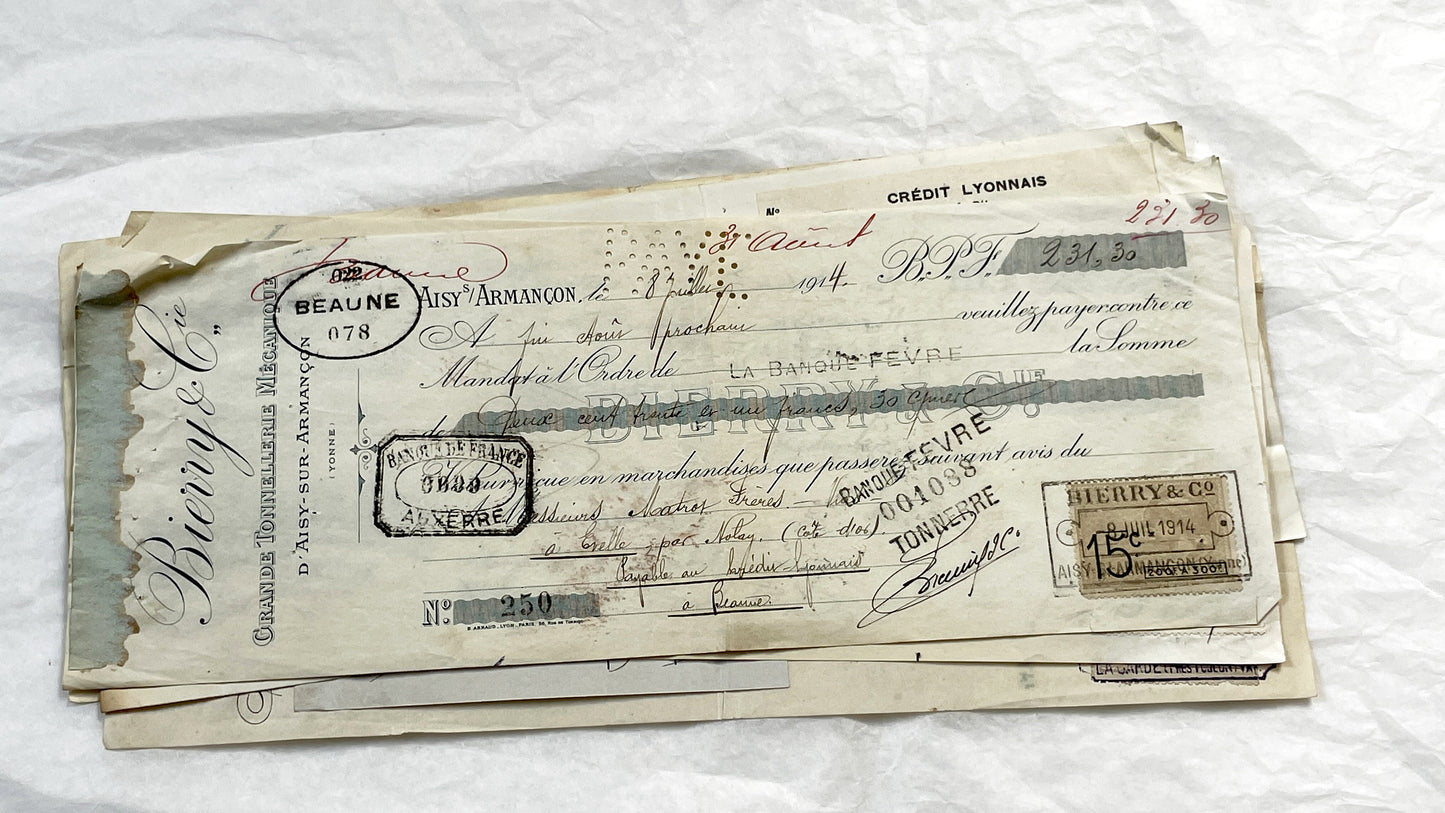 CRÉDIT LYONNAIS
No
31 Août
231 30
Beaune
022
BEAUNE
078
AISY S/ARMANÇON, le 8 Juillet 1914. B.P.F. 231,30
A fin Août prochain veuillez payer contre ce
Mandat à l'Ordre de LA BANQUE FEVRE la Somme
de Deux cent trente et un francs, 30 
BIERRY & CIE
Valeur reçue en marchandises que passerez suivant avis du
Messieurs Matrot Frères
à Evelle par Nolay, (Côte d'or)
Payable au Crédit Lyonnais
à Beaune
No. 250
B. ARNAUD, LYON-PARIS
Bierry & Cie
GRANDE TONNELLERIE MÉCANIQUE
D'AISY-SUR-ARMANÇON
(YONNE)
BANQUE DE FRANCE
AUXERRE
BANQUE FEVRE
004088
TONNERRE
BIERRY & Co
8 JUIL 1914
15c
200F À 300F